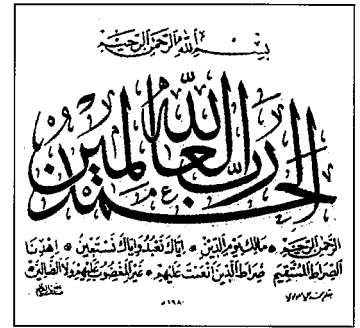 بسم الله الرحمن الرحيم
الحمد لله رب العالمين
الرحمن الرحيم * مالك يوم الدين * إياك نعبد وإياك نستعين * اهدنا
الصراط المستقيم صراط الذين أنعمت عليهم * غير المغضوب عليهم ولا الضالين
١٩٨٠م